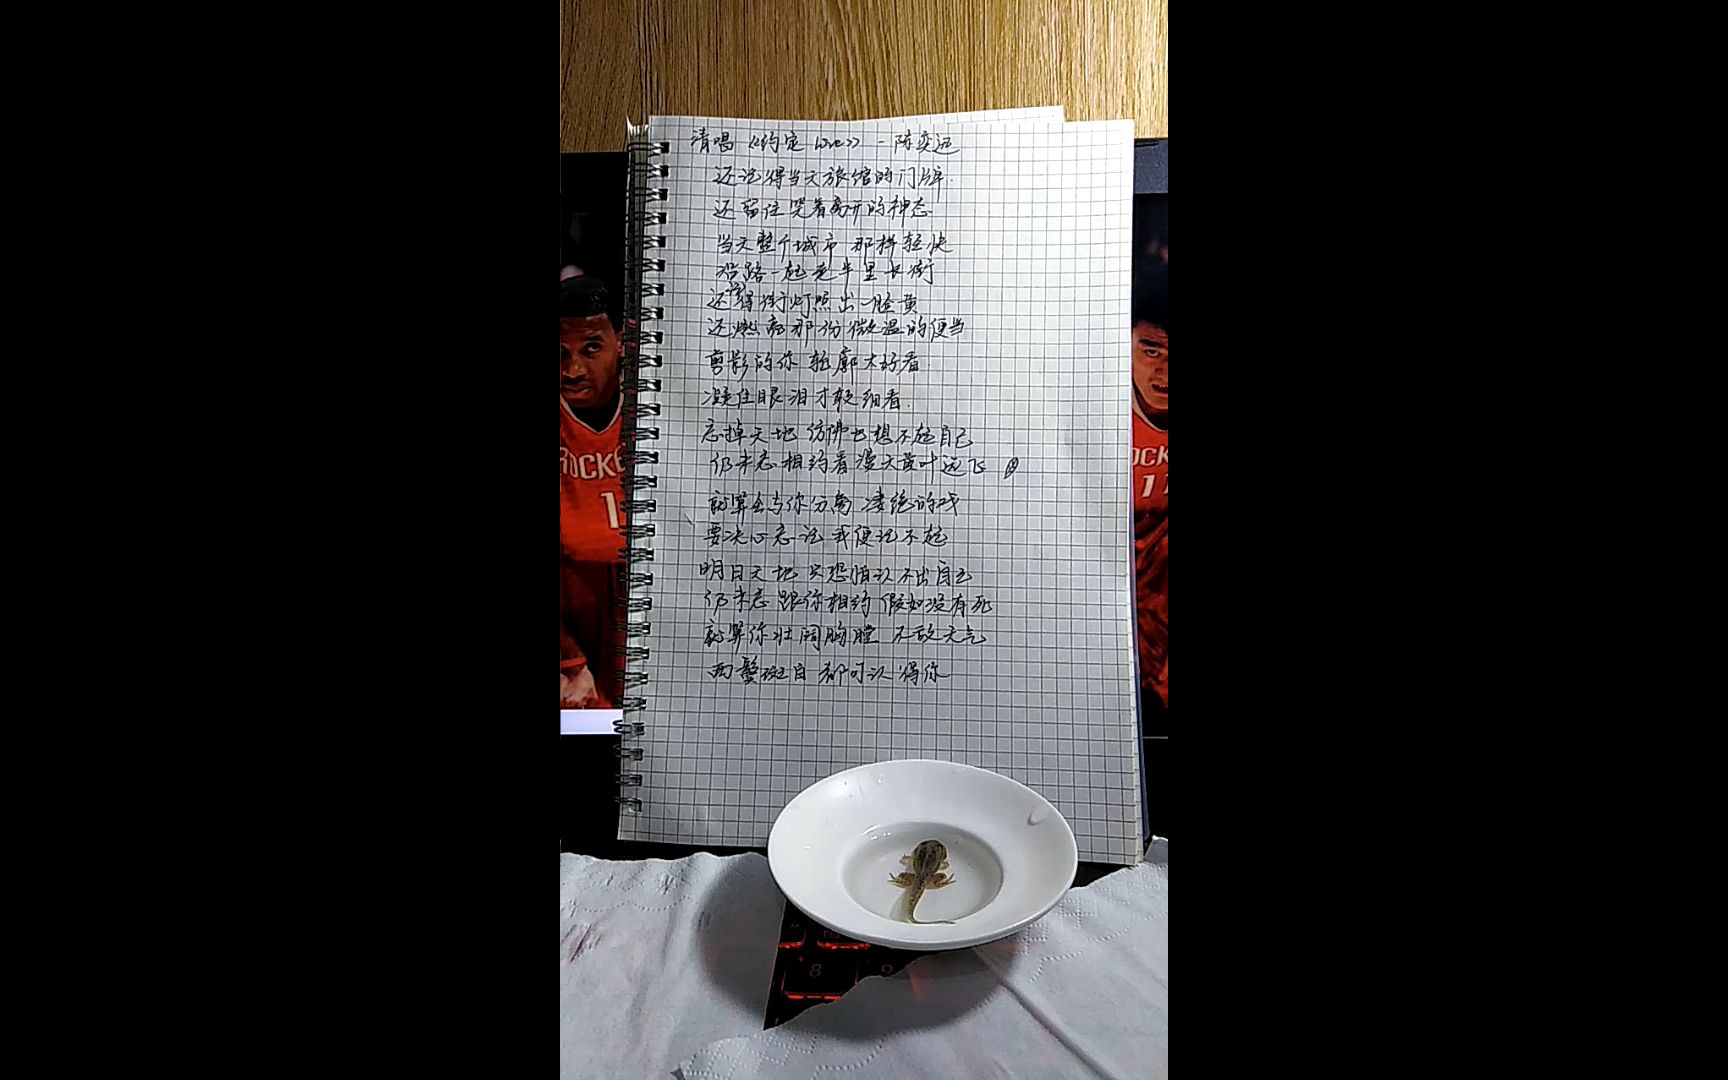 清唱《约定 Live》-陈奕迅
还记得当天旅馆的门牌
还留住笑着离开的神态
当天整个城市 那样轻快
沿路一起走半里长街
还记得街灯照出一脸黄
还燃亮那份微温的便当
剪影的你 轮廓太好看
凝住眼泪才敢细看
忘掉天地 仿佛也想不起自己
仍未忘相约看漫天黄叶远飞
就算会与你分离 凄绝的戏
要决心忘记 我便记不起
明日天地 只恐怕认不出自己
仍未忘 跟你相约 假如没有死
就算你壮阔胸膛 不敌天气
两鬓斑白 都可认得你
ROCKE
1
OCK
11
8
9